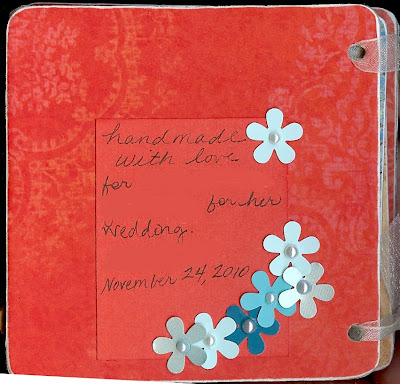 handmade
with love
for
for her
Wedding.
November 24, 2010